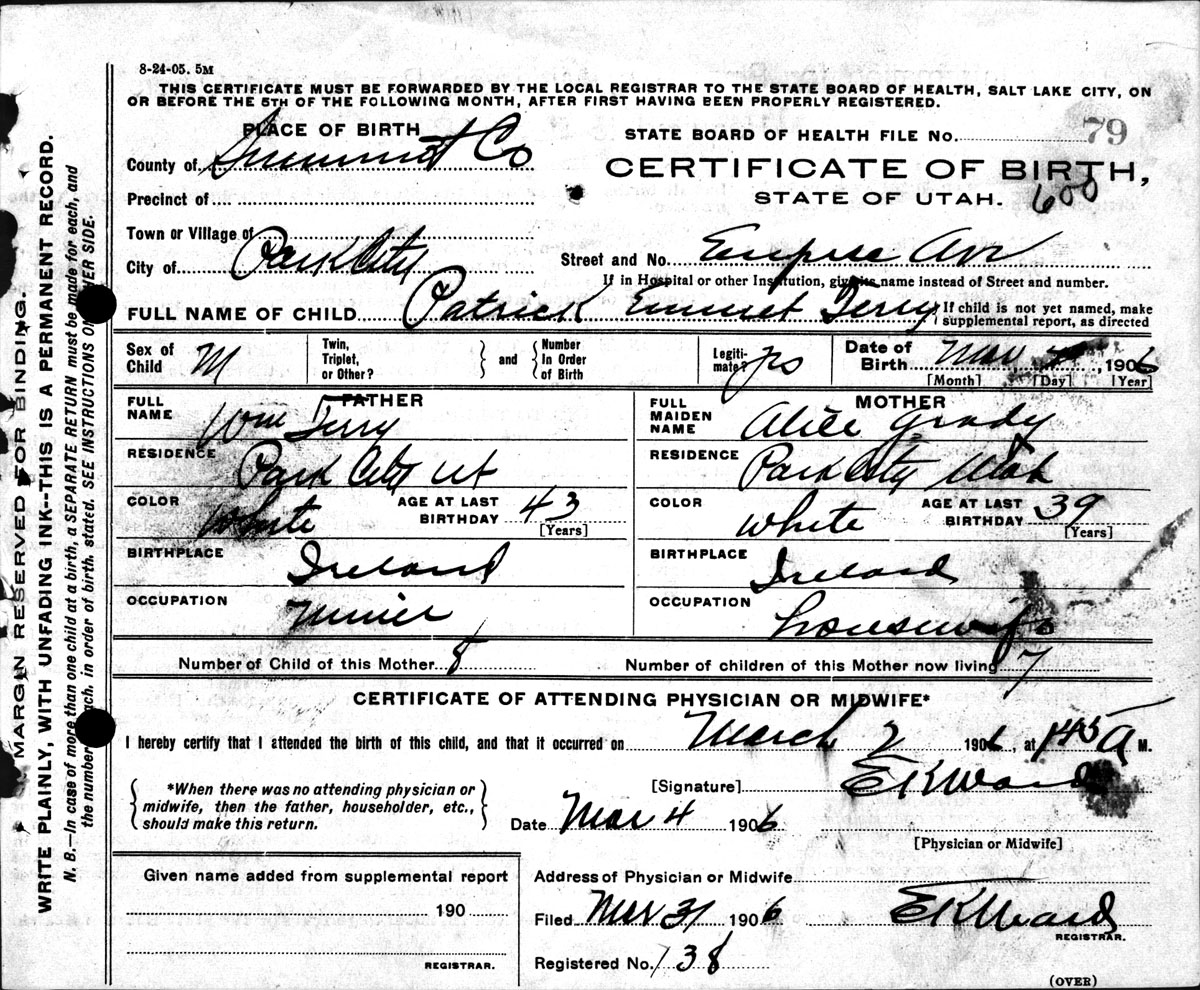 8-24-05. 5M
THIS CERTIFICATE MUST BE FORWARDED BY THE LOCAL REGISTRAR TO THE STATE BOARD OF HEALTH, SALT LAKE CITY, ON
OR BEFORE THE 5TH OF THE FOLLOWING MONTH, AFTER FIRST HAVING BEEN PROPERLY REGISTERED.
PLACE OF BIRTH
STATE BOARD OF HEALTH FILE No. 79
County of Summit Co
CERTIFICATE OF BIRTH,
Precinct of
STATE OF UTAH. 600
Town or Village of
City of Park City
Street and No. Empire Ave
If in Hospital or other Institution, give its name instead of Street and number.
FULL NAME OF CHILD Patrick Emmet Terry
If child is not yet named, make
supplemental report, as directed
Sex of Child M
Twin, Triplet, or Other?
and
Number In Order of Birth
Legiti-mate? yes
Date of Birth Mar , 1906
[Month] [Day] [Year]
FATHER
MOTHER
FULL NAME Wm Terry
FULL MAIDEN NAME Alice Grady
RESIDENCE Park City Ut
RESIDENCE Park City Utah
COLOR White AGE AT LAST BIRTHDAY 43 [Years]
COLOR White AGE AT LAST BIRTHDAY 39 [Years]
BIRTHPLACE Ireland
BIRTHPLACE Ireland
OCCUPATION Miner
OCCUPATION housewife
Number of Child of this Mother 8
Number of children of this Mother now living 7
CERTIFICATE OF ATTENDING PHYSICIAN OR MIDWIFE*
I hereby certify that I attended the birth of this child, and that it occurred on March 2 1906, at 1 45 A M.
*When there was no attending physician or
midwife, then the father, householder, etc.,
should make this return.
[Signature] E K Ward
Date Mar 4 1906
[Physician or Midwife]
Given name added from supplemental report
190
REGISTRAR.
Address of Physician or Midwife
Filed Mar 31 1906 E K Ward
REGISTRAR.
Registered No. 138
(OVER)
MARGIN RESERVED FOR BINDING.
WRITE PLAINLY, WITH UNFADING INK--THIS IS A PERMANENT RECORD.
N. B.—In case of more than one child at a birth, a SEPARATE RETURN must be made for each, and
the number each, in order of birth, stated. SEE INSTRUCTIONS ON OTHER SIDE.